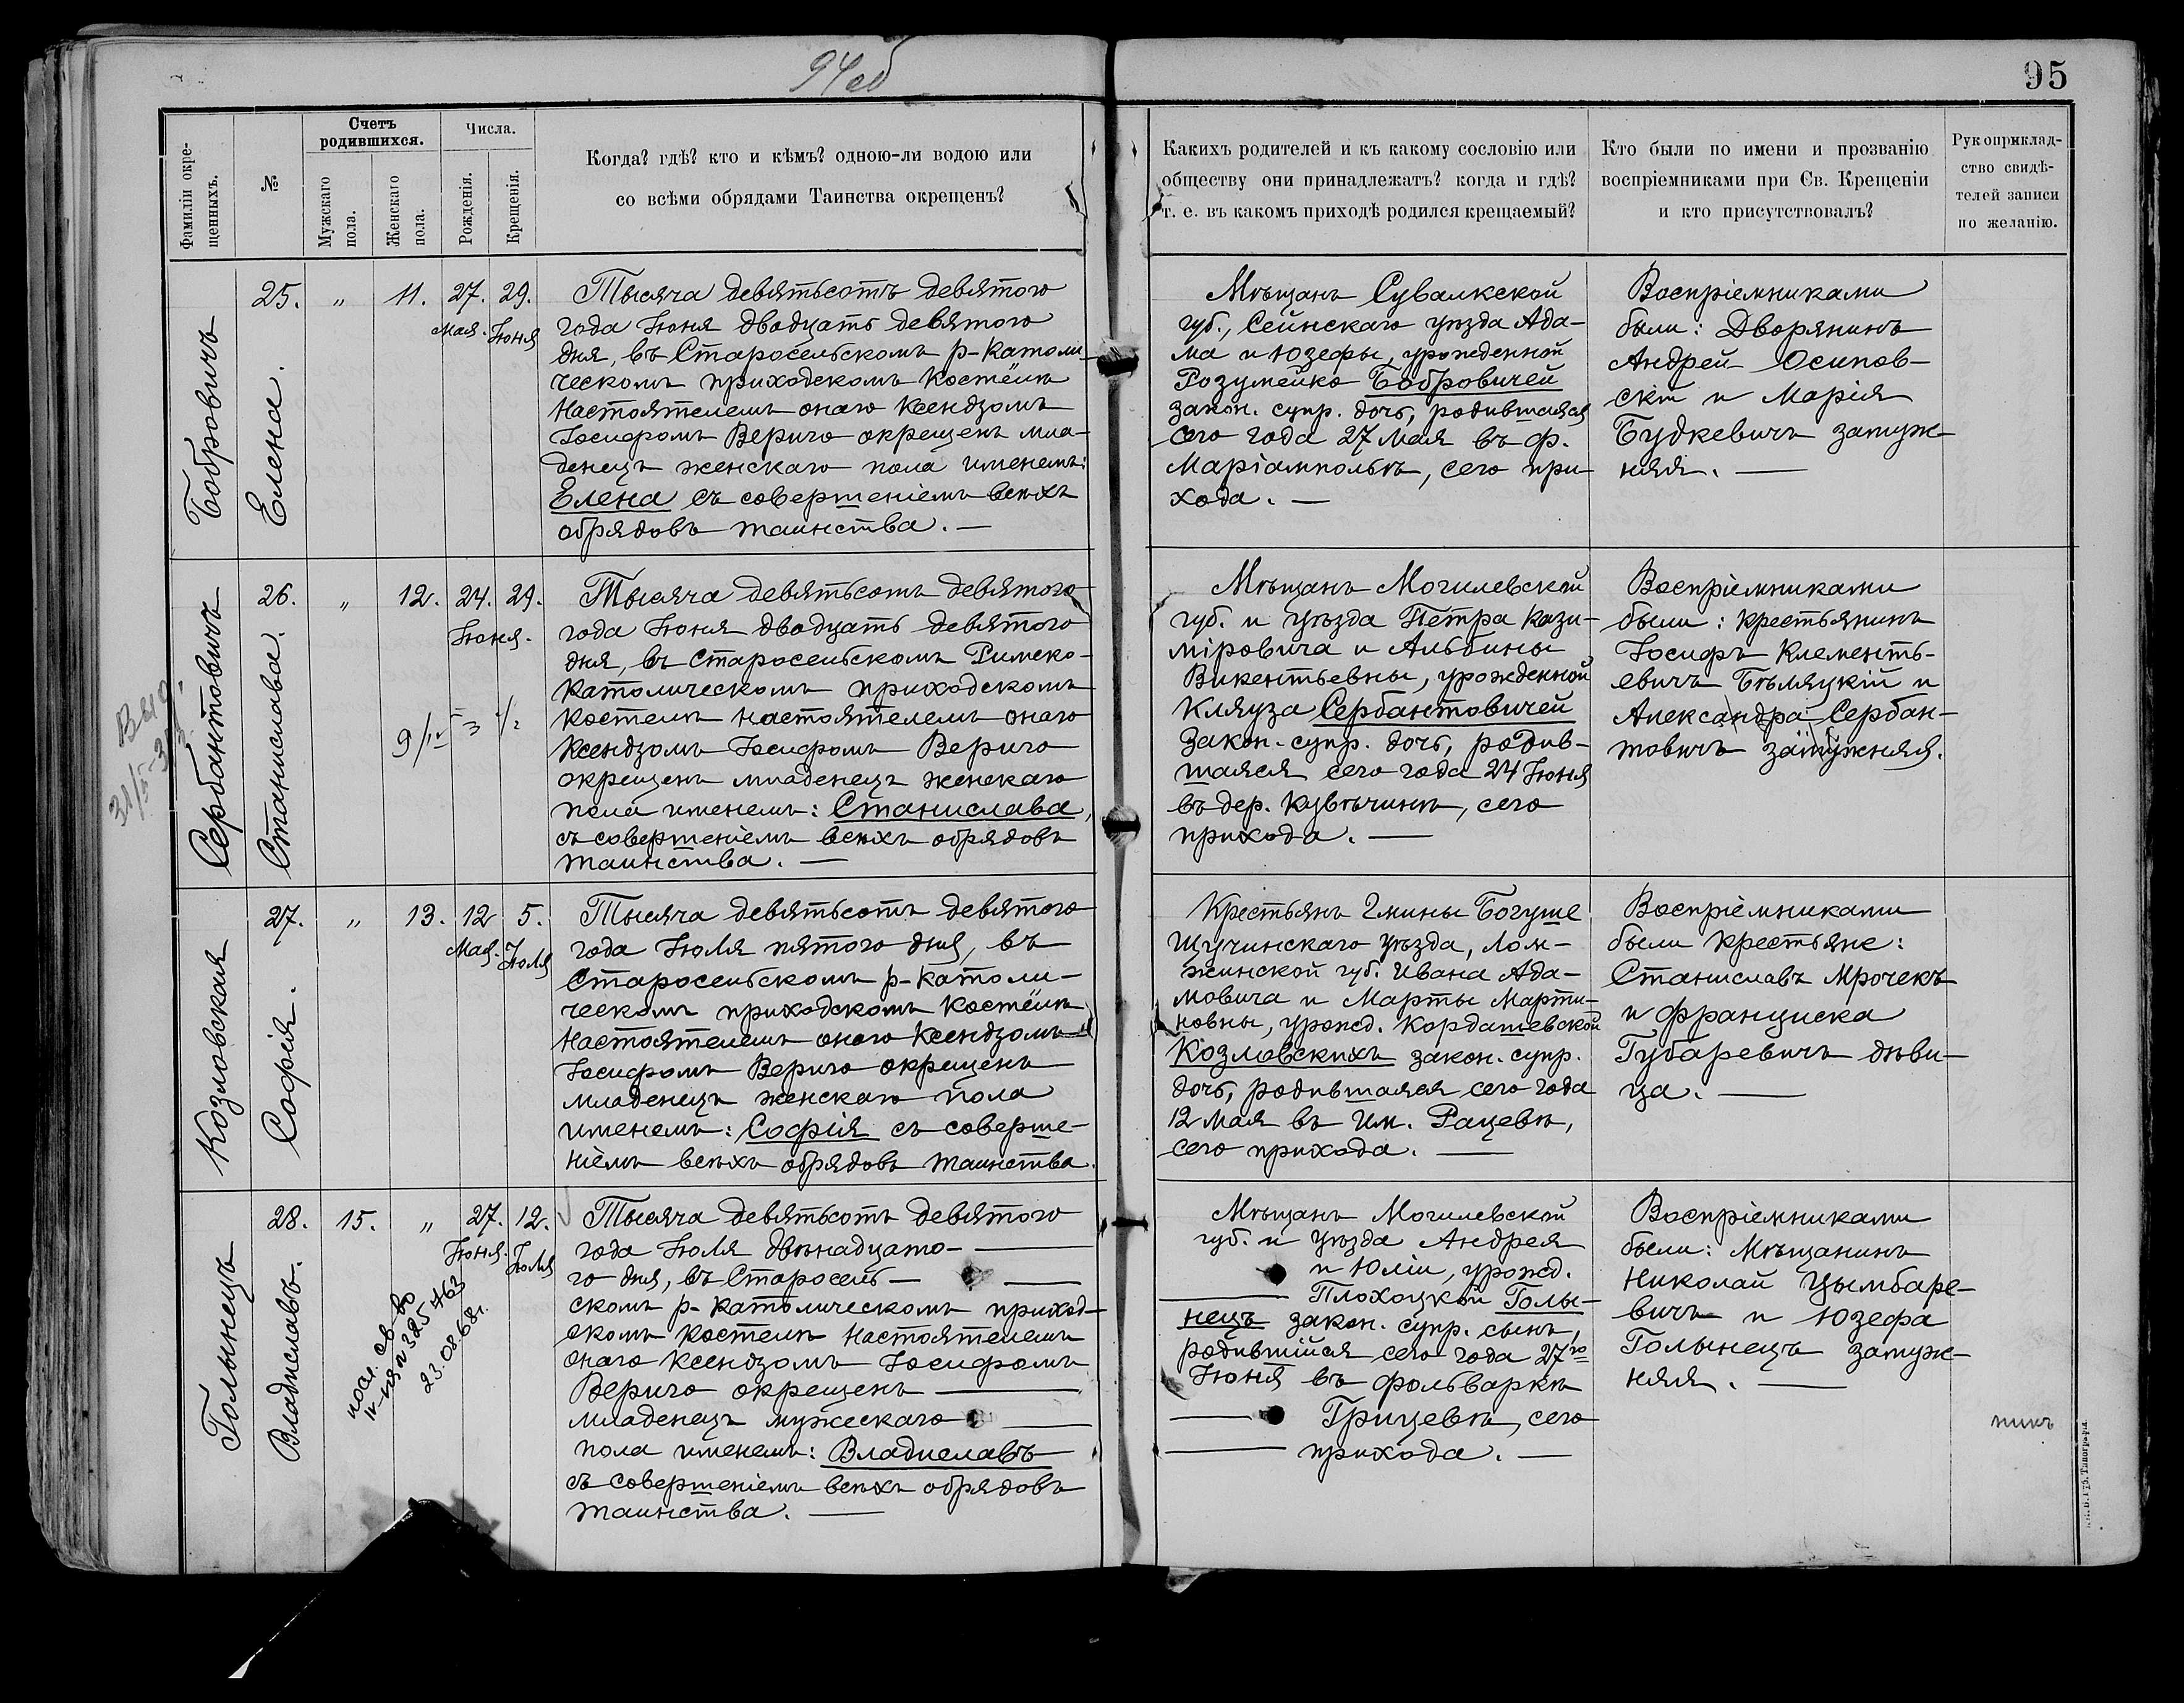 94об
95
Фамиліи окре-
щенныхъ.
№
Счетъ
родившихся.
Мужскаго
пола.
Женскаго
пола.
Числа.
Рожденія.
Крещенія.
Когда? гдѣ? кто и кѣмъ? одною-ли водою или
со всѣми обрядами Таинства окрещенъ?
Какихъ родителей и къ какому сословію или
обществу они принадлежатъ? когда и гдѣ?
т. е. въ какомъ приходѣ родился крещаемый?
Кто были по имени и прозванію
воспріемниками при Св. Крещеніи
и кто присутствовалъ?
Рукоприклад-
ство свидѣ-
телей записи
по желанію.
Бобровичъ
Елена.
25. " 11. 27. 29.
Мая. Іюня
Тысяча девятьсотъ девятого
года Іюня двадцать девятого
дня, въ Старосельскомъ р-католи-
ческомъ приходскомъ костёлѣ
Настоятелемъ онаго Ксендзомъ
Іосифомъ Вериго окрещенъ мла-
денецъ женскаго пола именемъ:
Елена съ совершеніемъ всѣхъ
обрядовъ таинства. —
Мѣщанъ Сувалкской
губ., Сейнскаго уѣзда Ада-
ма и Юзефы, урожденной
Розумейко Бобровичей
закон. супр. дочь, родившаяся
сего года 27 Мая въ ф.
Маріамполѣ, сего при-
хода. —
Воспріемниками
были: Дворянинъ
Андрей Осипов-
скій и Марія
Будкевичъ замуж-
няя. —
Сербантовичъ
Станислава.
26. " 12. 24. 29.
Іюня.
9/IV 3
31/5-3
Тысяча девятьсотъ девятого
года Іюня двадцать девятого
дня, въ Старосельскомъ Римско-
Католическомъ приходскомъ
костелѣ настоятелемъ онаго
Ксендзомъ Іосифомъ Вериго
окрещенъ младенецъ женскаго
пола именемъ: Станислава,
съ совершеніемъ всѣхъ обрядовъ
таинства. —
Мѣщанъ Могилевской
губ. и уѣзда Петра Кази-
міровича и Альбины
Викентьевны, урожденной
Кляуза Сербантовичей
закон. супр. дочь, родив-
шаяся сего года 24 Іюня
въ дер. Кувѣчинѣ, сего
прихода. —
Воспріемниками
были: крестьянинъ
Іосифъ Клементь-
евичъ Бѣляцкій и
Александра Сербан-
товичъ замужняя.
Козловская
Софія.
27. " 13. 12 5.
Мая. Іюля
Тысяча девятьсотъ девятого
года Іюля пятого дня, въ
Старосельскомъ р-католи-
ческомъ приходскомъ костёлѣ
Настоятелемъ онаго Ксендзомъ
Іосифомъ Вериго окрещенъ
младенецъ женскаго пола
именемъ: Софія съ соверше-
ніемъ всѣхъ обрядовъ таинства.
Крестьянъ Гмины Богуше
Щучинскаго уѣзда, Лом-
жинской губ. Ивана Ада-
мовича и Марты Марти-
новны, урожд. Кордашевской
Козловскихъ закон. супр.
дочь, родившаяся сего года
12 Мая въ им. Рацевѣ,
сего прихода. —
Воспріемниками
были крестьяне:
Станиславъ Мрочекъ
и Франциска
Губаревичъ дѣви-
ца. —
Голынецъ
Владиславъ.
28. 15. " 27. 12.
Іюня. Іюля
325463
23.08.68г.
Тысяча девятьсотъ девятого
года Іюля двѣнадцато-
го дня, въ Старосель-
скомъ р-католическомъ приход-
скомъ костелѣ Настоятелемъ
онаго Ксендзомъ Іосифомъ
Вериго окрещенъ
младенецъ мужескаго
пола именемъ: Владиславъ
съ совершеніемъ всѣхъ обрядовъ
таинства. —
Мѣщанъ Могилевской
губ. и уѣзда Андрея
и Юліи, урожд.
Плохоцкой Голы-
нецъ закон. супр. сынъ,
родившійся сего года 27го
Іюня въ фольваркѣ
Грицевѣ, сего
прихода. —
Воспріемниками
были: Мѣщанинъ
Николай Цымбаре-
вичъ и Юзефа
Голынецъ замуж-
няя. —
никъ
Типографія.